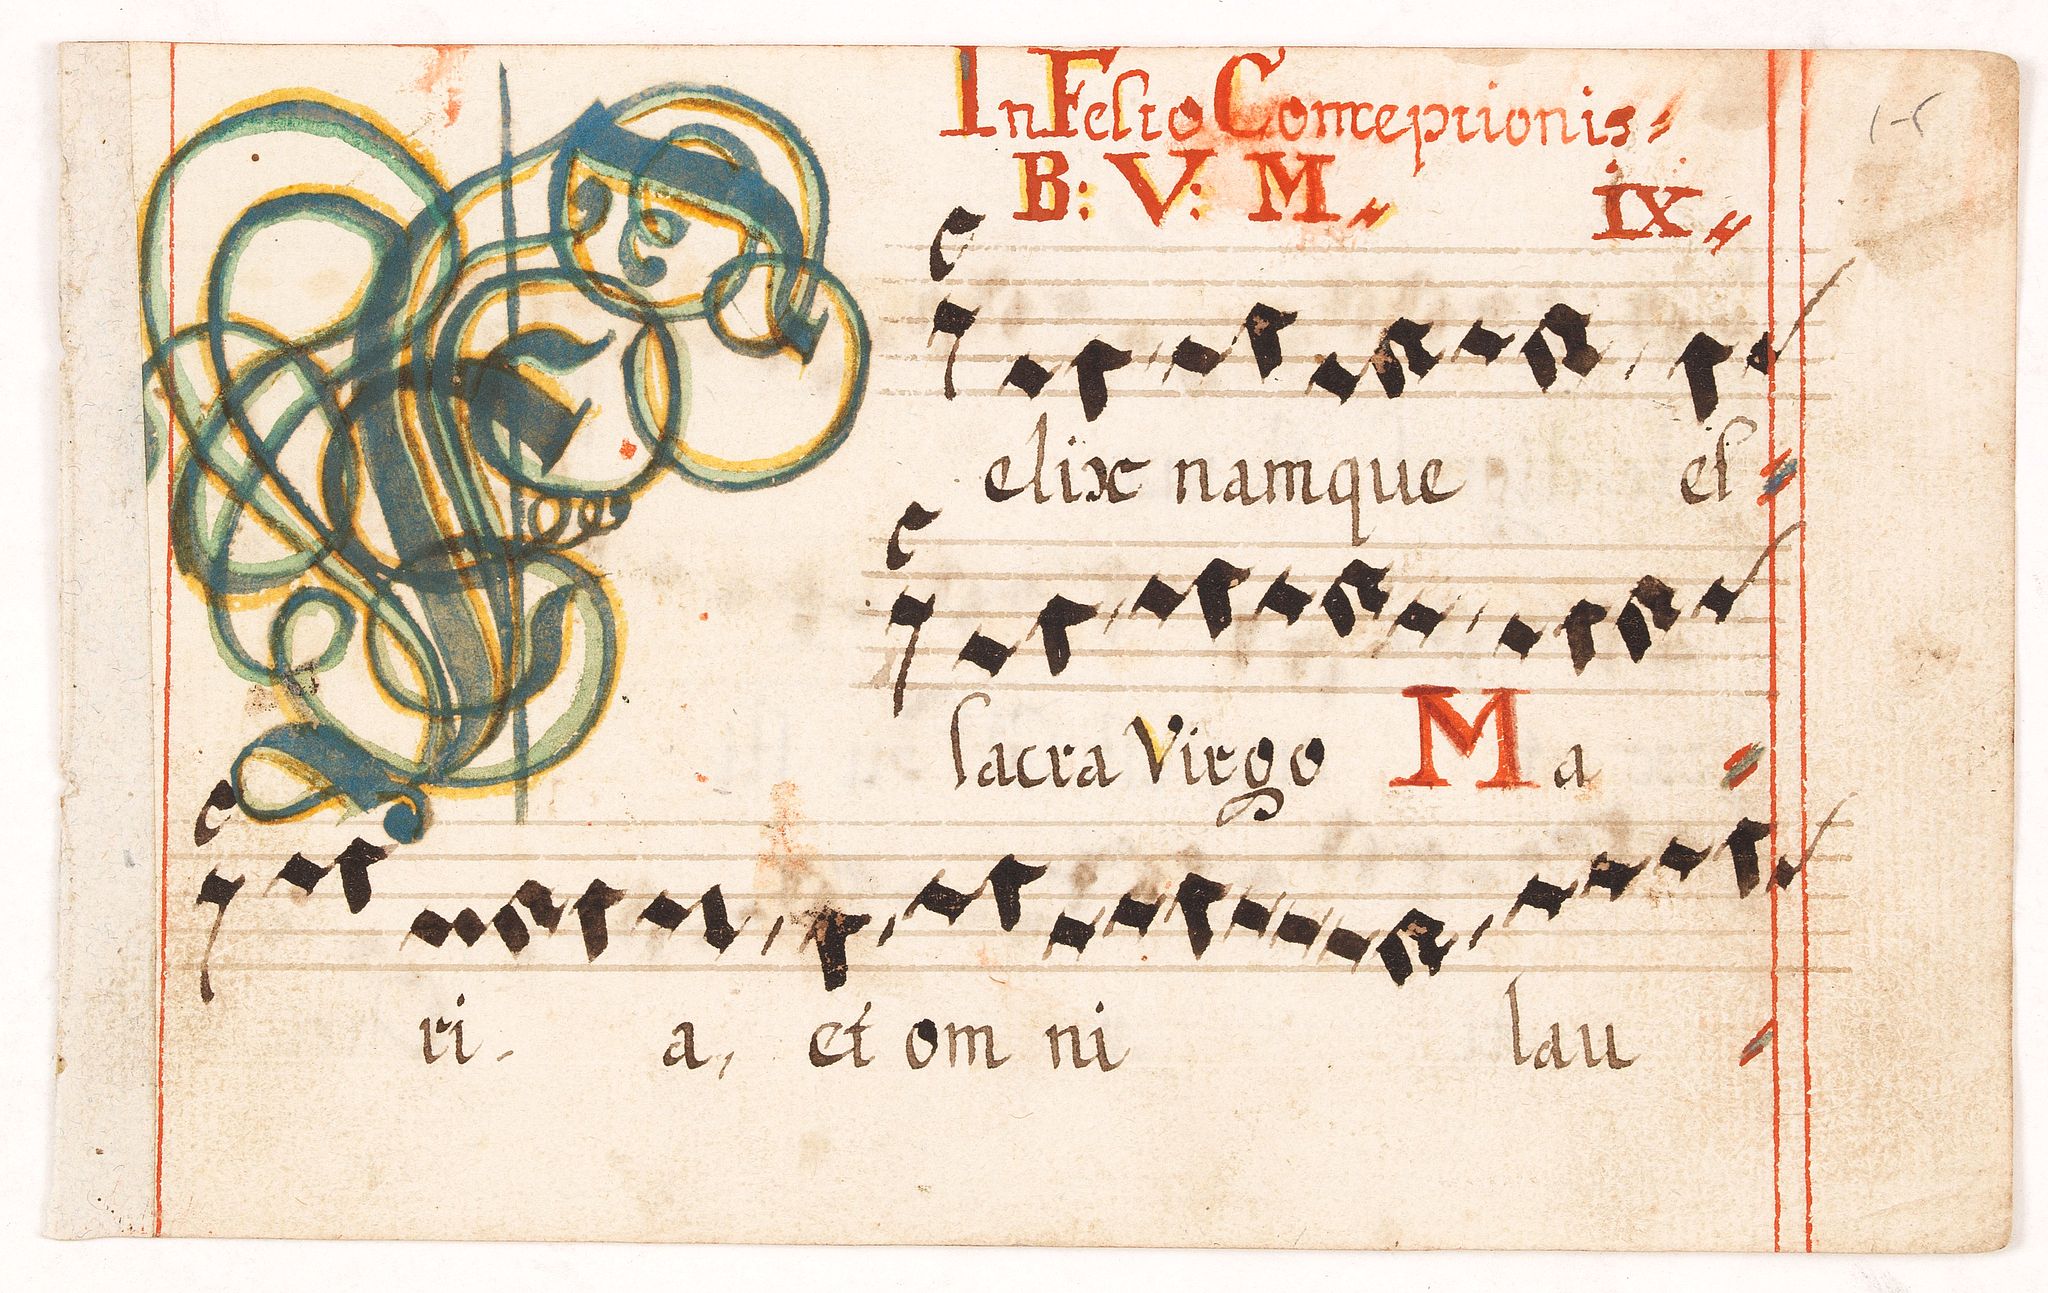 In Festo Conceptionis
B: V: M
IX
Felix namque es
sacra Virgo Ma
ri- a, et om ni lau